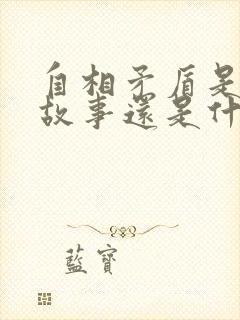 自相矛盾是
故事還是什
藍寶